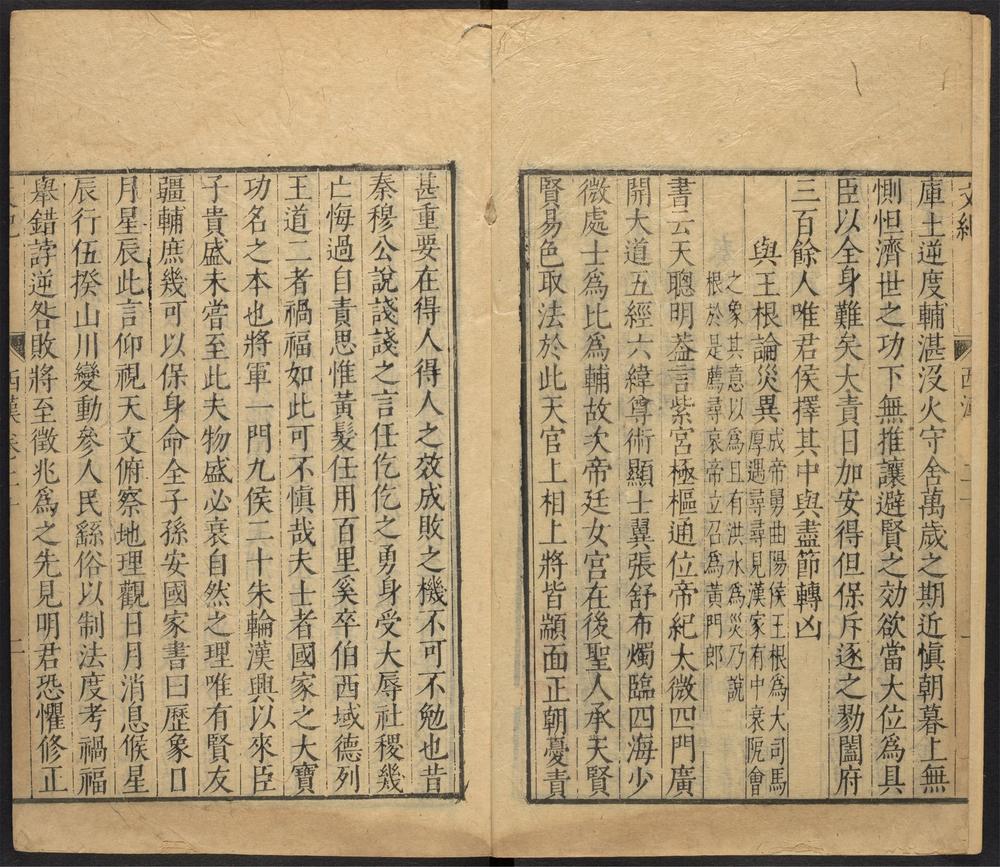 文紀
西漢
庫土逆度輔湛沒火守舍萬歲之期近慎朝暮上無
惻怛濟世之功下無推讓避賢之効欲當大位爲具
臣以全身難矣大責日加安得但保斥逐之勠闔府
三百餘人唯君侯擇其中與盡節轉凶
與王根論災異
成帝舅曲陽侯王根爲大司馬
厚遇尋尋見漢家有中衰阸會
之象其意以爲且有洪水爲災乃說
根於是薦尋哀帝立召爲黃門郎
書云天聰明葢言紫宮極樞通位帝紀太微四門廣
開大道五經六緯尊術顯士翼張舒布燭臨四海少
微處士爲比爲輔故次帝廷女宮在後聖人承天賢
賢易色取法於此天官上相上將皆顓面正朝憂責
甚重要在得人得人之效成敗之機不可不勉也昔
秦穆公說諓諓之言任仡仡之勇身受大辱社稷幾
亡悔過自責思惟黃髮任用百里奚卒伯西域德列
王道二者禍福如此可不慎哉夫士者國家之大寶
功名之本也將軍一門九侯二十朱輪漢興以來臣
子貴盛未嘗至此夫物盛必衰自然之理唯有賢友
疆輔庶幾可以保身命全子孫安國家書曰歷象日
月星辰此言仰視天文俯察地理觀日月消息候星
辰行伍揆山川變動參人民繇俗以制法度考禍福
舉錯誖逆咎敗將至徵兆爲之先見明君恐懼修正
西漢卷十